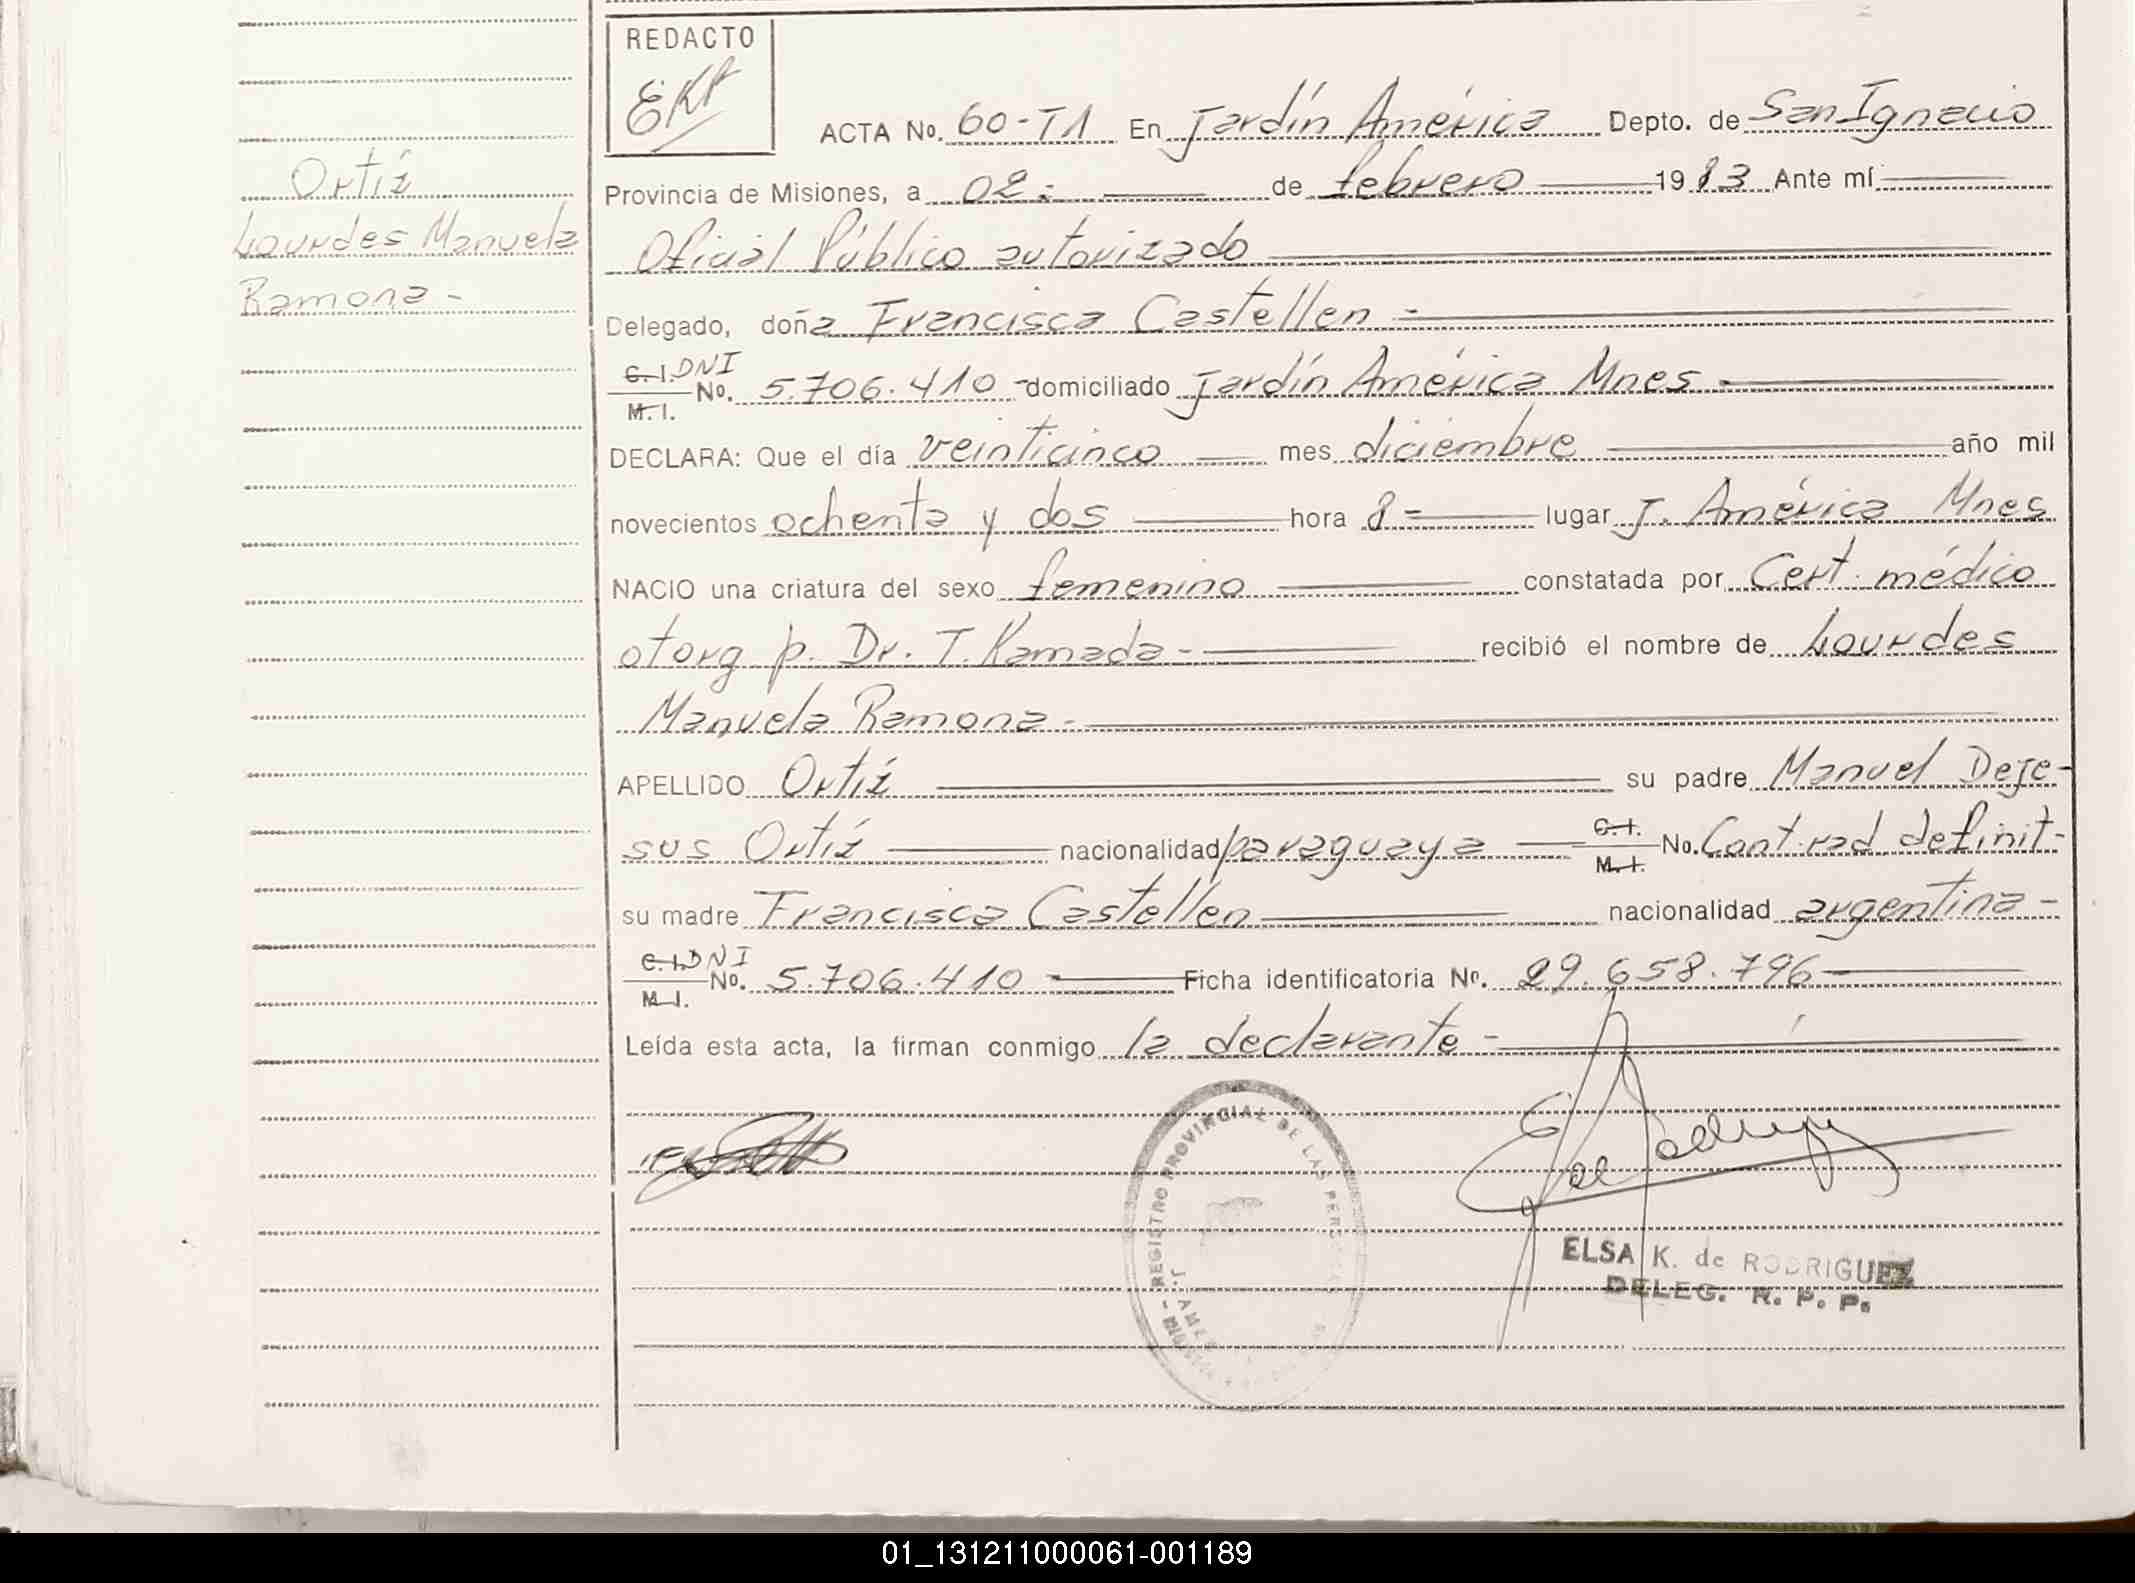 REDACTO
EKR
ACTA No. 60-T1 En Jardín América Depto. de San Ignacio
Ortíz
Provincia de Misiones, a 02 - de febrero 1983 Ante mí
Lourdes Manuela
Oficial Público autorizado
Ramona -
Delegado, doña Francisca Castellen -
C. I. DNI
M. I. No. 5.706.410 - domiciliado Jardín América Mnes -
DECLARA: Que el día veinticinco mes diciembre año mil
novecientos ochenta y dos hora 8 - lugar J. América Mnes
NACIO una criatura del sexo femenino constatada por Cert. médico
otorg p. Dr. T. Kamada - recibió el nombre de Lourdes
Manuela Ramona -
APELLIDO Ortíz su padre Manuel Deje-
sus Ortíz nacionalidad paraguaya C. I. M. I. No. Cont. rad. definit-
su madre Francisca Castellen nacionalidad argentina -
C. I. DNI
M. I. No. 5.706.410 - Ficha identificatoria No. 29.658.796 -
Leída esta acta, la firman conmigo la declarante -
REGISTRO PROVINCIAL DE LAS PERS
ELSA K. de RODRIGUEZ
DELEG. R. P. P.
01_131211000061-001189